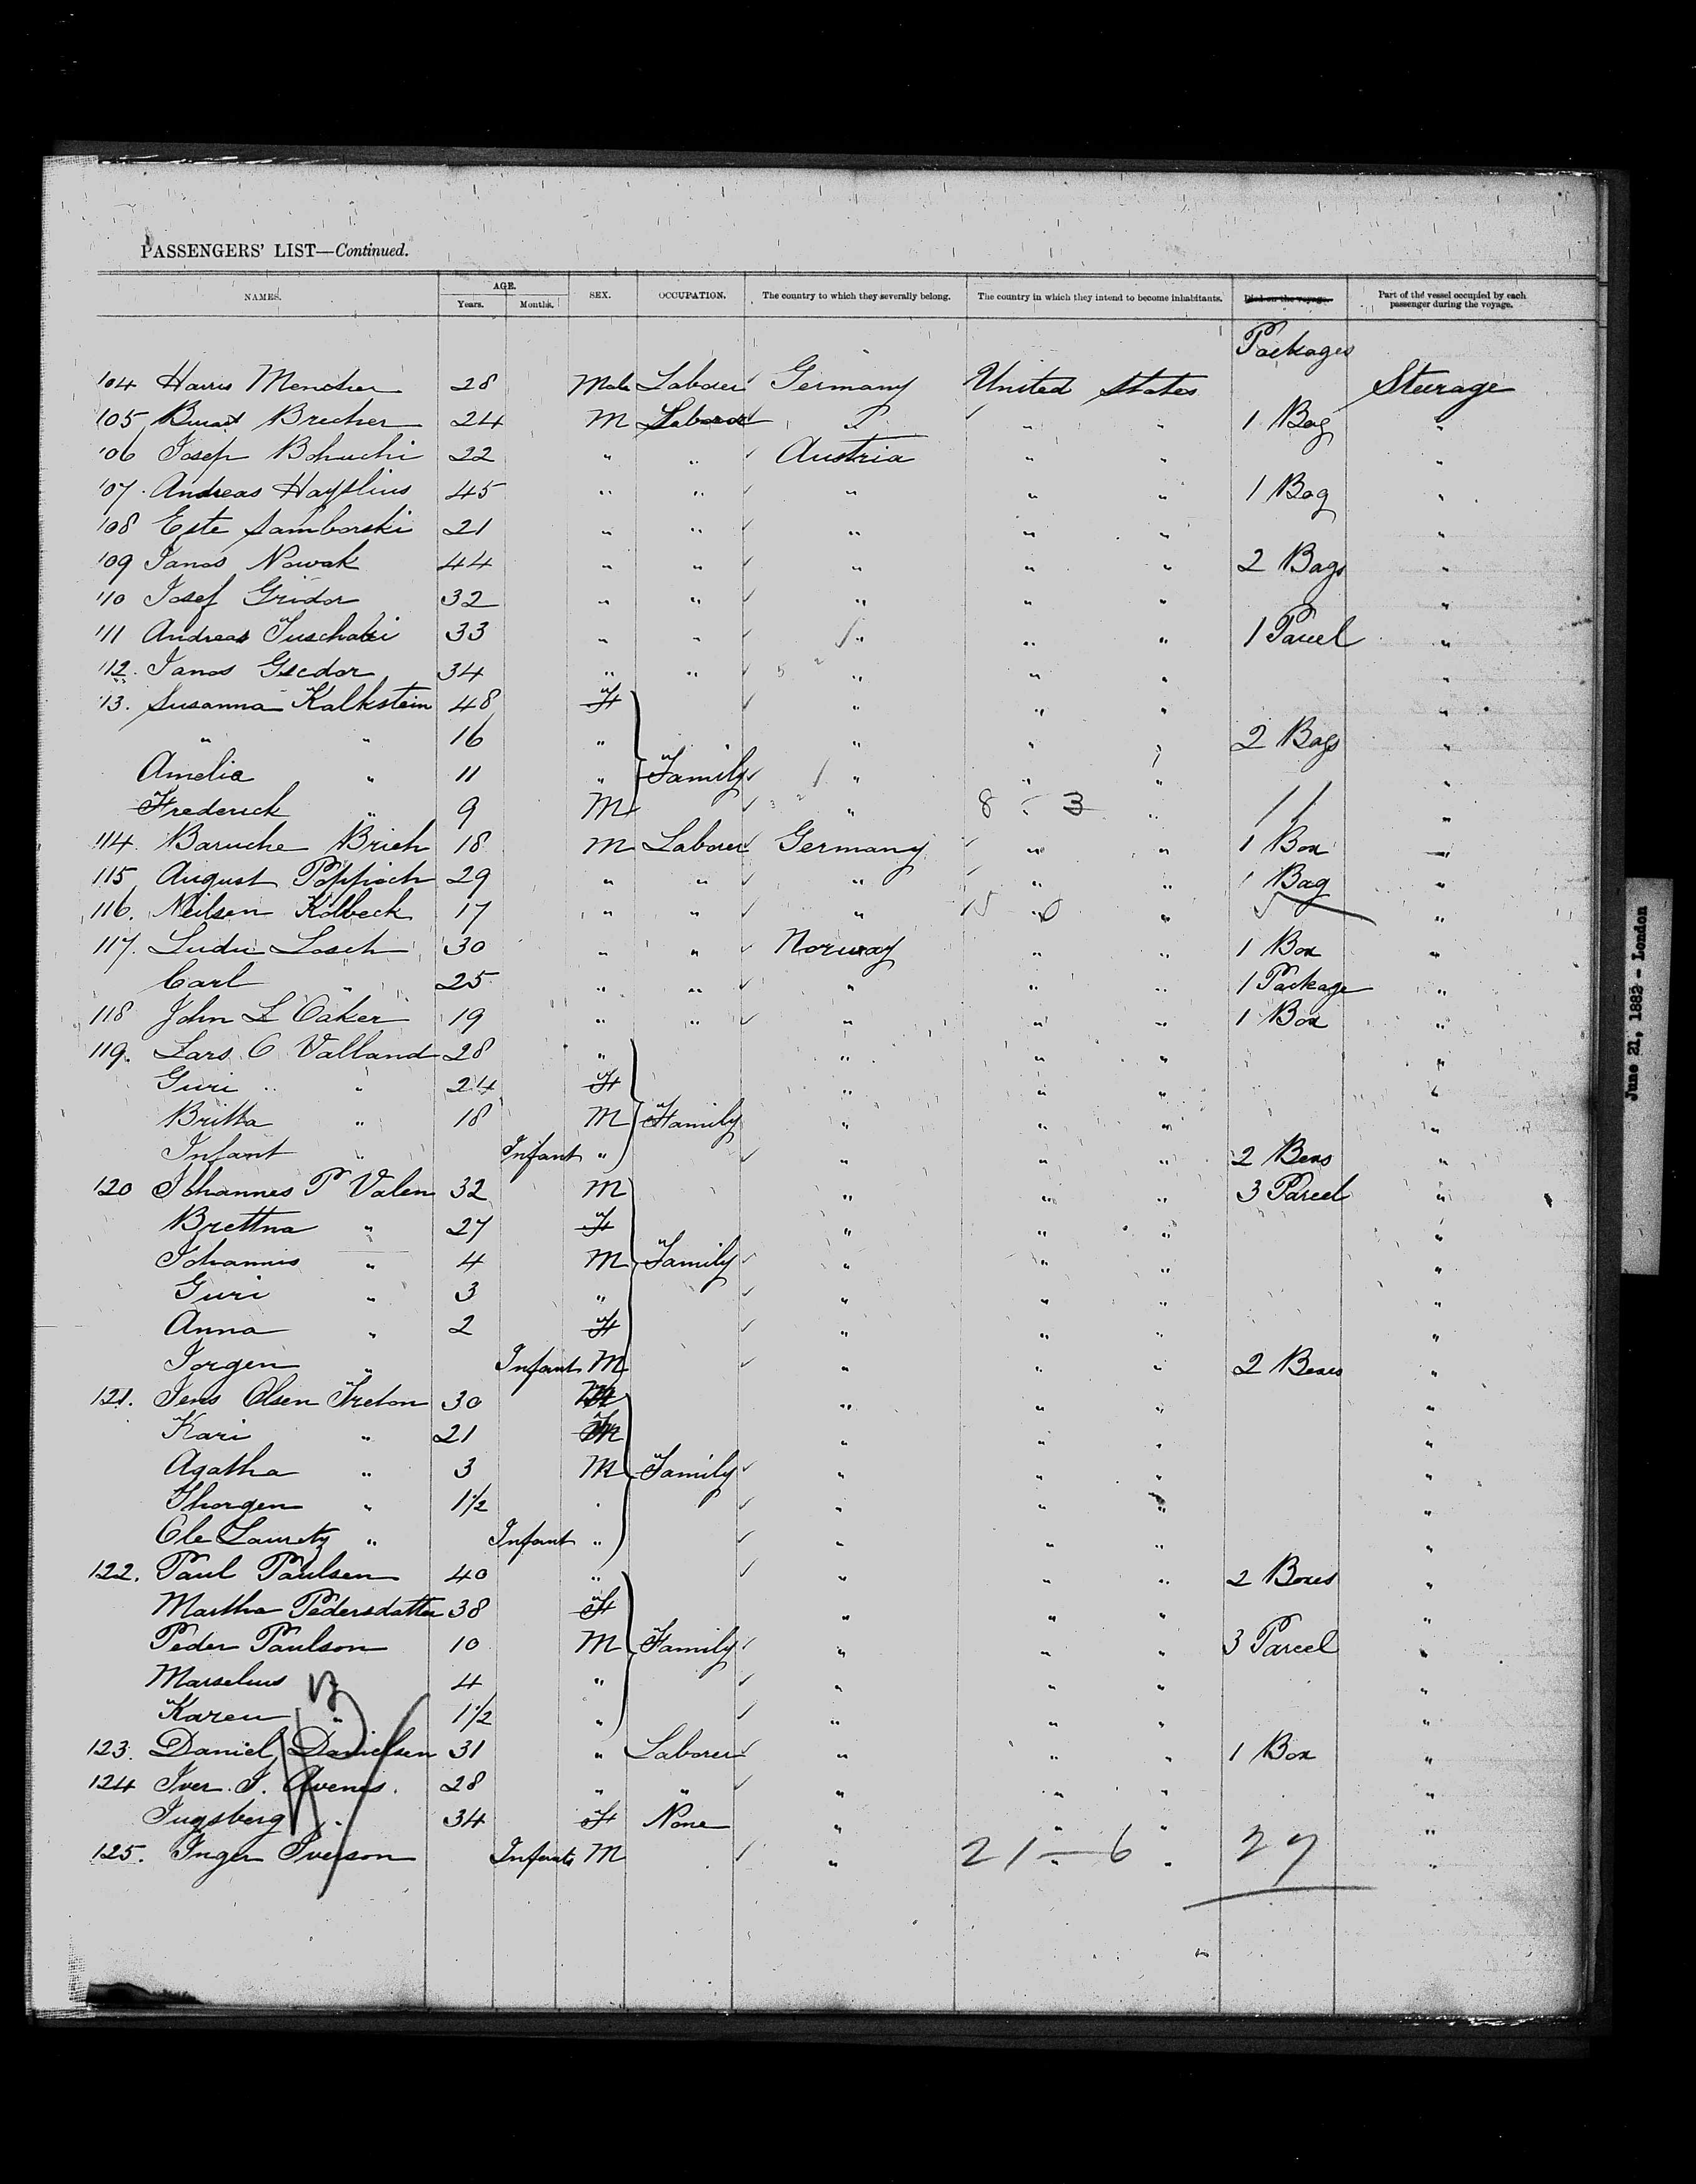 PASSENGERS' LIST—Continued.
NAMES. AGE. Years. Months. SEX. OCCUPATION. The country to which they severally belong. The country in which they intend to become inhabitants. Died on the voyage. Part of the vessel occupied by each passenger during the voyage.
Packages
104 Harris Mencher 28 Male Laborer Germany United States Steerage
105 Brecher 24 M Laborer " " 1 Bag "
106 Josep Bohuchi 22 " " Austria " " "
107. Andreas 45 " " " " " 1 Bag "
108 Este Samborski 21 " " " " " "
109 Janos Nowak 44 " " " " " 2 Bags "
110 Josef Gridor 32 " " " " " "
111 Andreas 33 " " " " " 1 Parcel "
112. Janos 34 " " " " " "
13. Susanna Kalkstein 48 F " " " "
" " 16 " " " " 2 Bags "
Amelia " 11 " Family " " " "
Frederick " 9 M " 8 - 3 " 11 "
114. Baruche Brieh 18 M Laborer Germany " " 1 Box "
115 August Poppisch 29 " " " " " 1 Bag "
116. Neilsen Kolbeck 17 " " " 15 0 " "
117. Losch 30 " " Norway " " 1 Box "
Carl " 25 " " " " " 1 Package "
118 John L Oaker 19 " " " " " 1 Box "
119. Lars O Valland 28 " " " " "
Guri " " 24 F " " " "
Britta " 18 M Family " " " "
Infant " Infant " " " " 2 Boxes "
120 Johannes P Valen 32 M " " " 3 Parcel "
Brettna " 27 F " " " "
Johannis " 4 M Family " " " "
Guri " 3 " " " " "
Anna " 2 F " " " "
Jorgen " Infant M " " " 2 Boxes "
121. Jens Olsen Treton 30 M " " " "
Kari " 21 F " " " "
Agatha " 3 M Family " " " "
Thorgen " 1½ " " " " "
Ole Lauretz " Infant " " " " "
122. Paul Paulsen 40 " " " " 2 Boxes "
Martha Pedersdatter 38 F " " " "
Peder Paulson 10 M Family " " " 3 Parcel "
Marselius 4 " " " " "
Karen " 1½ " " " " "
123. Daniel Danielsen 31 " Laborer " " " 1 Box "
124 Iver. I. Avenes. 28 " " " " " "
Ingsberg " 34 F None " " " "
125. Inger Iverson Infants M " 21 — 6 " 27 "
June 21, 1882 - London